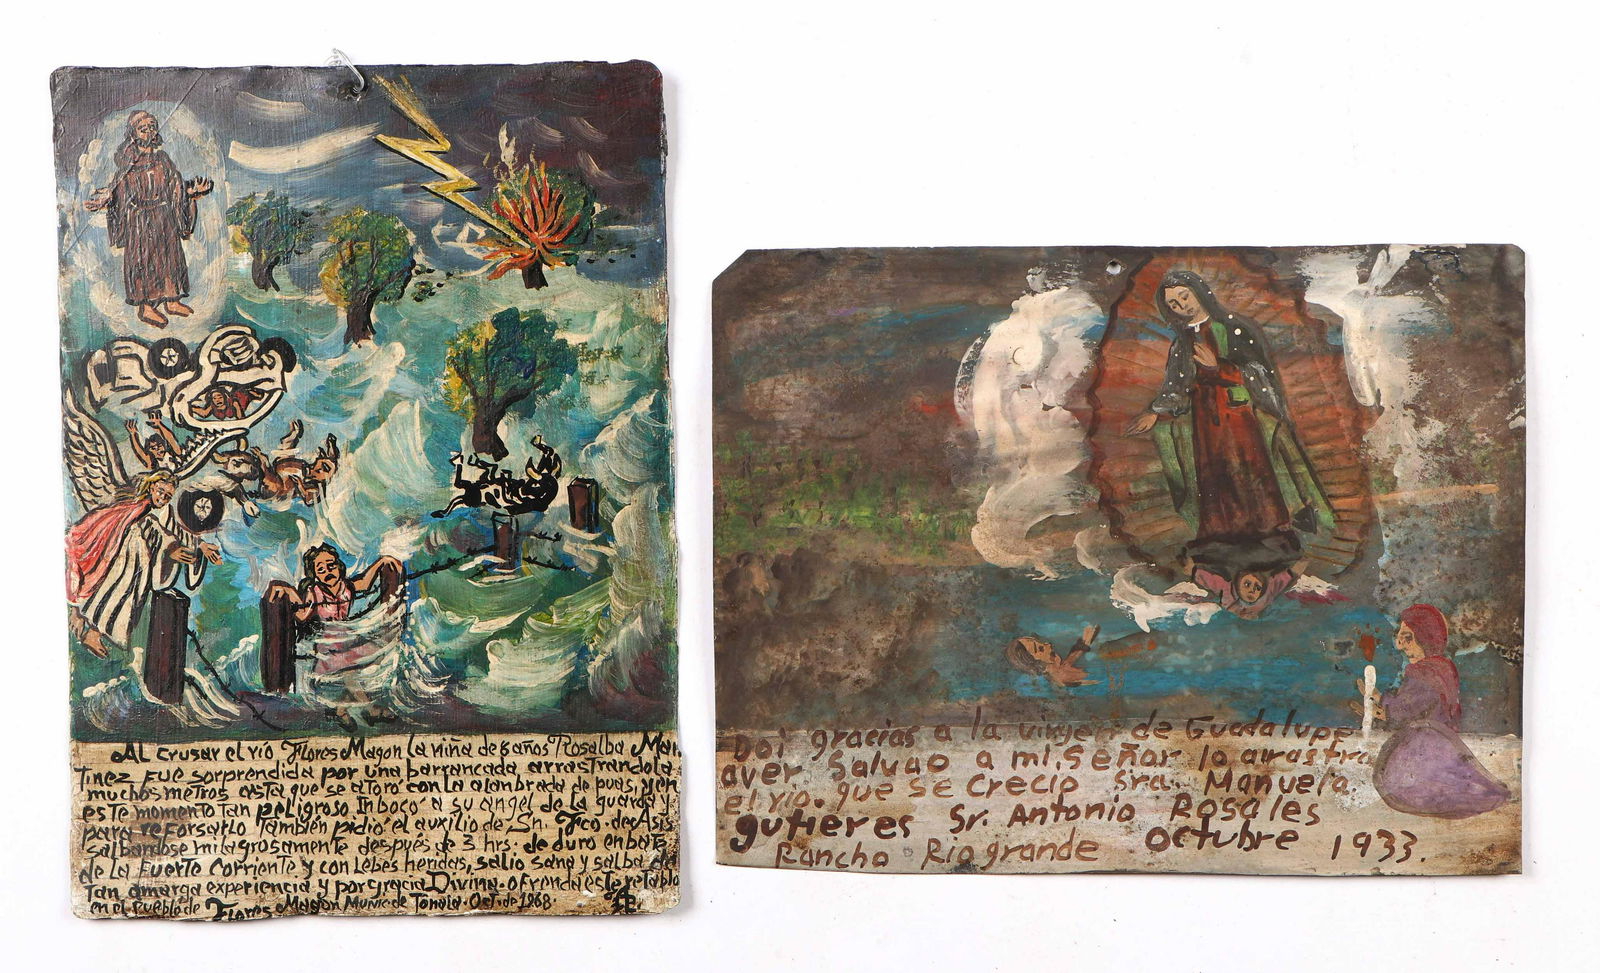 AL crusar el río Flores Magon La niña de 8 años Rosalba Mar.
Tinez fue sorprendida por una barrancada, arrastrandola
muchos metros asta que se atoro con la alanbrada de puas, y en
este momento tan peligroso Inboco a su angel de la guarda y
para reforsarlo también pidio el auxilio de Sn. Fco. de Asis
salbandose milagrosamente después de 3 hrs. de duro enbate
de la fuerte corriente y con lebes heridas, salio sana y salba de
tan amarga experiencia y por gracia Divina. ofrenda este retablo
en el Pueblo de Flores Magon Munic de Tonala. Oct. de 1968.
Doi gracias a la virgen de Guadalupe
aver Salvao a mi Señor lo arrastra
el rio. que se crecio Sra. Manuela.
gutieres Sr. Antonio Rosales
Rancho Rio grande octubre 1933.